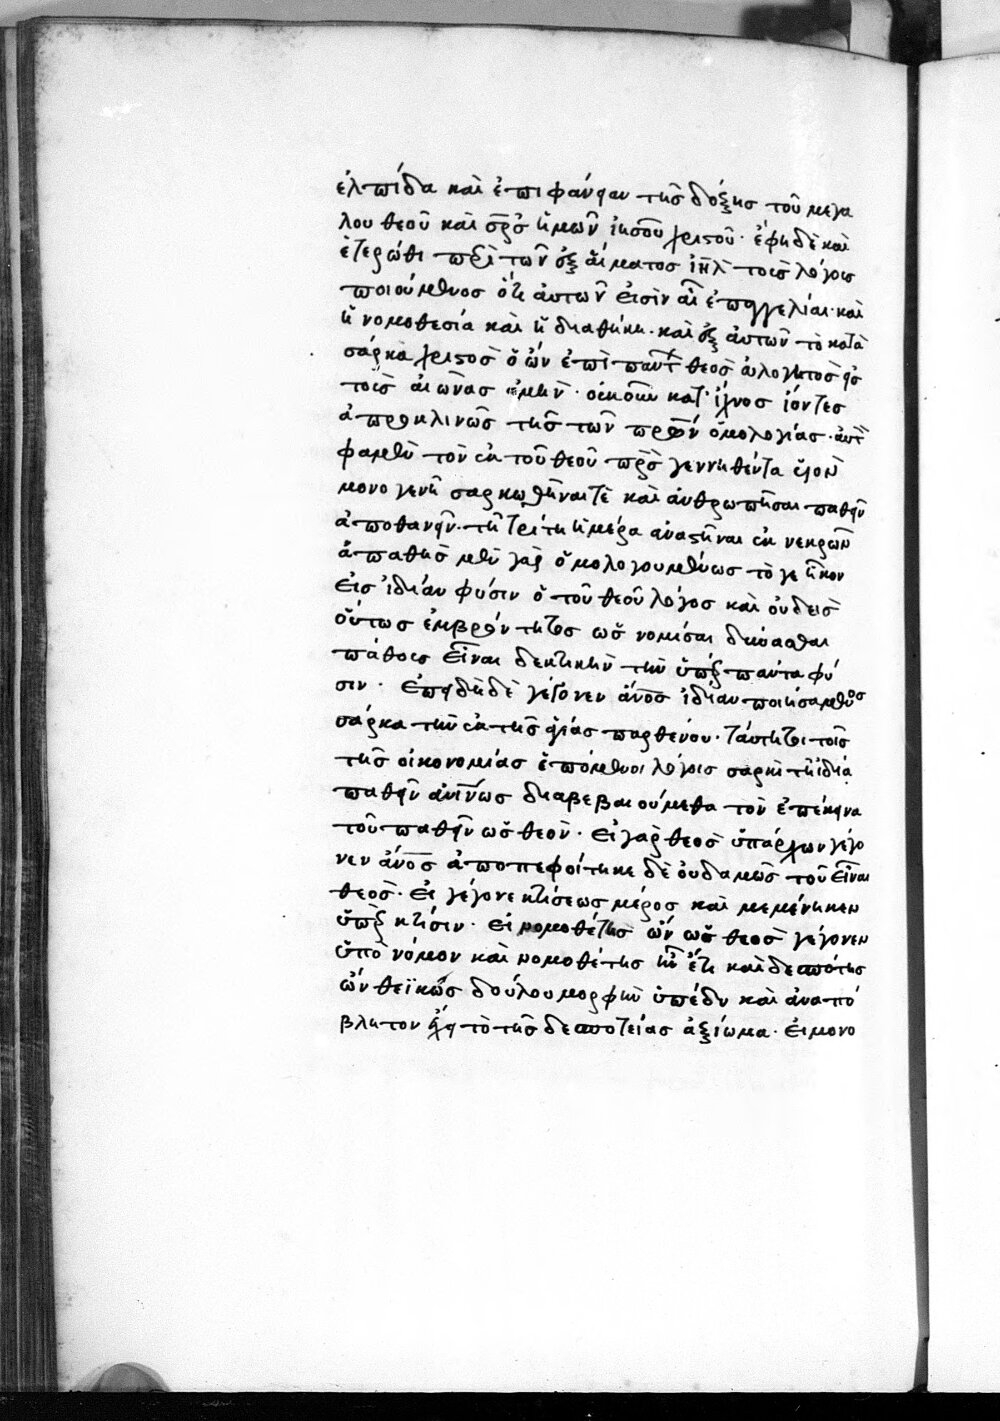 ἐλπίδα καὶ ἐπιφάνειαν τῆς δόξης τοῦ μεγά
λου θεοῦ καὶ σρς ἡμῶν ἰησοῦ χριστοῦ· ἔφη δὲ καὶ
ἑτέρωθι περὶ τῶν ἐξ αἵματος ιηλ τοὺς λόγους
ποιούμενος ὅτι αὐτῶν εἰσὶν αἱ ἐπαγγελίαι· καὶ
ἡ νομοθεσία καὶ ἡ διαθήκη· καὶ ἐξ αὐτῶν τὸ κατὰ
σάρκα χριστὸς ὁ ὢν ἐπὶ πάντ θεὸς εὐλογητὸς εἰς
τοὺς αἰῶνας ἀμήν· οὐκοῦν κατ' ἴχνος ἰόντες
ἀπαρεκλινῶς τῆς τῶν πρων ὁμολογίας· αὐτ
φαμεν τὸν ἐκ τοῦ θεοῦ πρς γεννηθέντα υἱὸν
μονογενῆ σαρκωθῆναι τὲ καὶ ἀνθρωπῆσαι παθεῖν
ἀποθανεῖν· τῇ τρίτη ἡμέρα ἀναστῆναι ἐκ νεκρῶν
ἀπαθὴς μὲν γὰρ ὁμολογουμένως τό γε ἧκον
εἰς ἰδίαν φύσιν ὁ τοῦ θεοῦ λόγος καὶ οὐδεὶς
οὕτως ἐμβρόντητος ὡς νομίσαι δύνασθαι
πάθους εἶναι δεκτικὴν τὴν ὑπὲρ πάντα φύ
σιν· ἐπειδὴ δὲ γέγονεν ανος ἰδίαν ποιησάμενος
σάρκα τὴν ἐκ τῆς ἁγίας παρθένου· ταύτητοι τοῖς
τῆς οἰκονομίας ἑπόμενοι λόγοις σαρκὶ τῆ ἰδία
παθεῖν ανινως διαβεβαιούμεθα τὸν ἐπέκεινα
τοῦ παθεῖν ὡς θεὸν· εἰ γὰρ θεὸς ὑπάρχων γέγο
νεν ανος ἀποπεφοίτηκε δὲ οὐδαμῶς τοῦ εἶναι
θεὸς· εἰ γέγονε κτίσεως μέρος καὶ μεμένηκεν
ὑπὲρ κτίσιν· εἰ νομοθέτης ὢν ὡς θεὸς γέγονεν
ὑπὸ νόμον καὶ νομοθέτης ἦν ἔτι καὶ δεσπότης
ὢν θεϊκῶς δούλου μορφὴν ὑπέδυ καὶ ἀναπό
βλητον ἔχει τὸ τῆς δεσποτείας ἀξίωμα· εἰ μονο